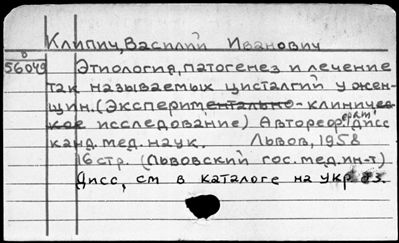 Клипич, Василий Иванович
56049
Этиология, патогенез и лечение
так называемых цисталгий у жен-
щин. (Экспериментально-клиничес-
кое исследование) Автореферат дисс
канд. мед. наук. Львов, 1958
16 стр. (Львовский гос. мед. ин-т)
Дисс, см в каталоге на укр яз.